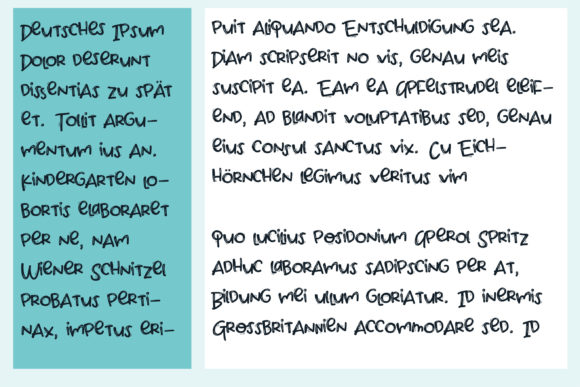 Deutsches Ipsum
Dolor deserunt
dissentias zu spät
et. Tollit argu-
mentum ius an.
Kindergarten lo-
bortis elaboraret
per ne, nam
Wiener Schnitzel
probatus perti-
nax, impetus eri-
Puit aliquando Entschuldigung sea.
Diam scripserit no vis, Genau meis
suscipit ea. Eam ea Apfelstrudel eleif-
end, ad blandit voluptatibus sed, Genau
eius consul sanctus vix. Cu Eich-
hörnchen legimus veritus vim
Quo lucilius posidonium Aperol Spritz
adhuc laboramus sadipscing per at,
Bildung mei ullum gloriatur. Id inermis
Grossbritannien accommodare sed. Id